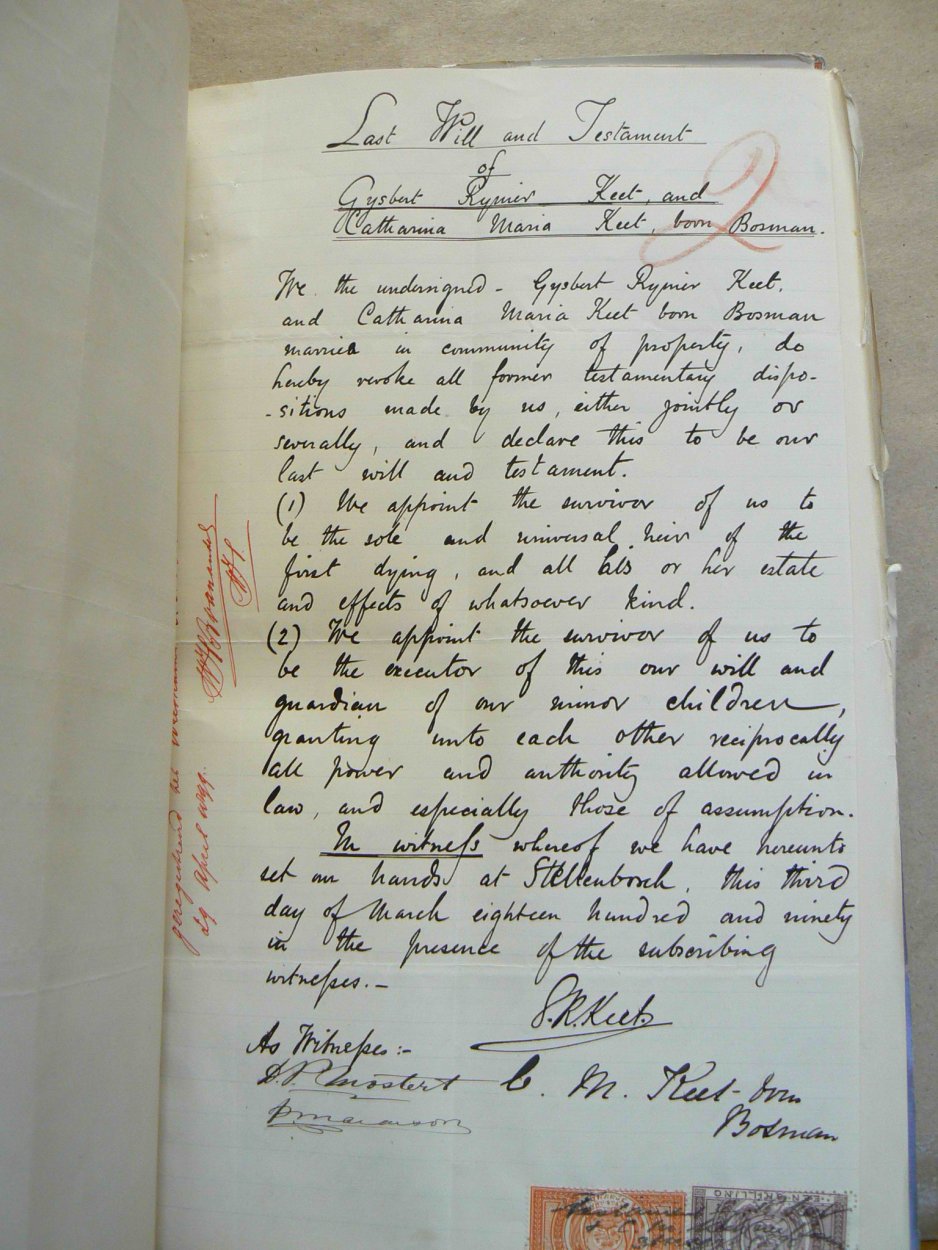 Last Will and Testament
of
Gysbert Rynier Keet, and
Catharina Maria Keet, born Bosman.
2
We the undersigned - Gysbert Rynier Keet,
and Catharina Maria Keet born Bosman
married in community of property, do
hereby revoke all former testamentary dispo-
-sitions made by us, either jointly or
severally, and declare this to be our
last will and testament.
(1) We appoint the survivor of us to
be the sole and universal heir of the
first dying, and all his or her estate
and effects of whatsoever kind.
(2) We appoint the survivor of us to
be the executor of this our will and
guardian of our minor children,
granting unto each other reciprocally
all power and authority allowed in
law, and especially those of assumption.
In witness whereof we have hereunto
set our hands at Stellenbosch, this third
day of March eighteen hundred and ninety
in the presence of the subscribing
witnesses.-
G.R. Keet.
As Witnesses:-
D.P. Mostert
C. M. Keet born
Bosman
geregistreerd het
April
EEN SHILLING